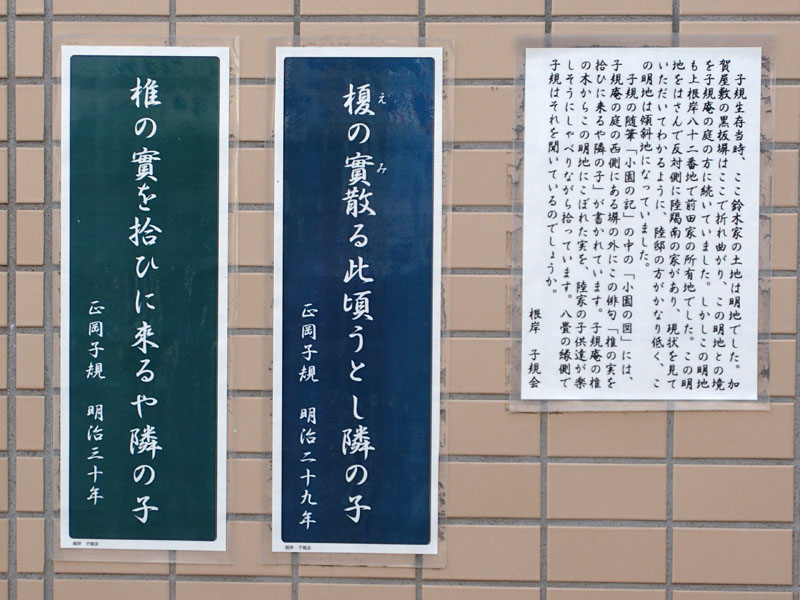 子規生存当時、ここ鈴木家の土地は明地でした。加
賀屋敷の黒板塀はここで折れ曲がり、この明地との境
を子規庵の庭の方に続いていました。しかしこの明地
も上根岸八十二番地で前田家の所有地でした。この明
地をはさんで反対側に陸羯南の家があり、現状を見て
いただいてわかるように、陸邸の方がかなり低く、こ
の明地は傾斜地になっていました。
子規の随筆「小園の記」の中の「小園の図」には、
子規庵の庭の西側にある塀の外にこの俳句「椎の実を
拾ひに来るや隣の子」が書かれています。子規庵の椎
の木からこの明地にこぼれた実を、陸家の子供達が楽
しそうにしゃべりながら拾っています。八畳の縁側で
子規はそれを聞いているのでしょうか。
根岸 子規会
榎の實散る此頃うとし隣の子
え み
正岡子規 明治二十九年
根岸 子規会
椎の實を拾ひに来るや隣の子
正岡子規 明治三十年
根岸 子規会